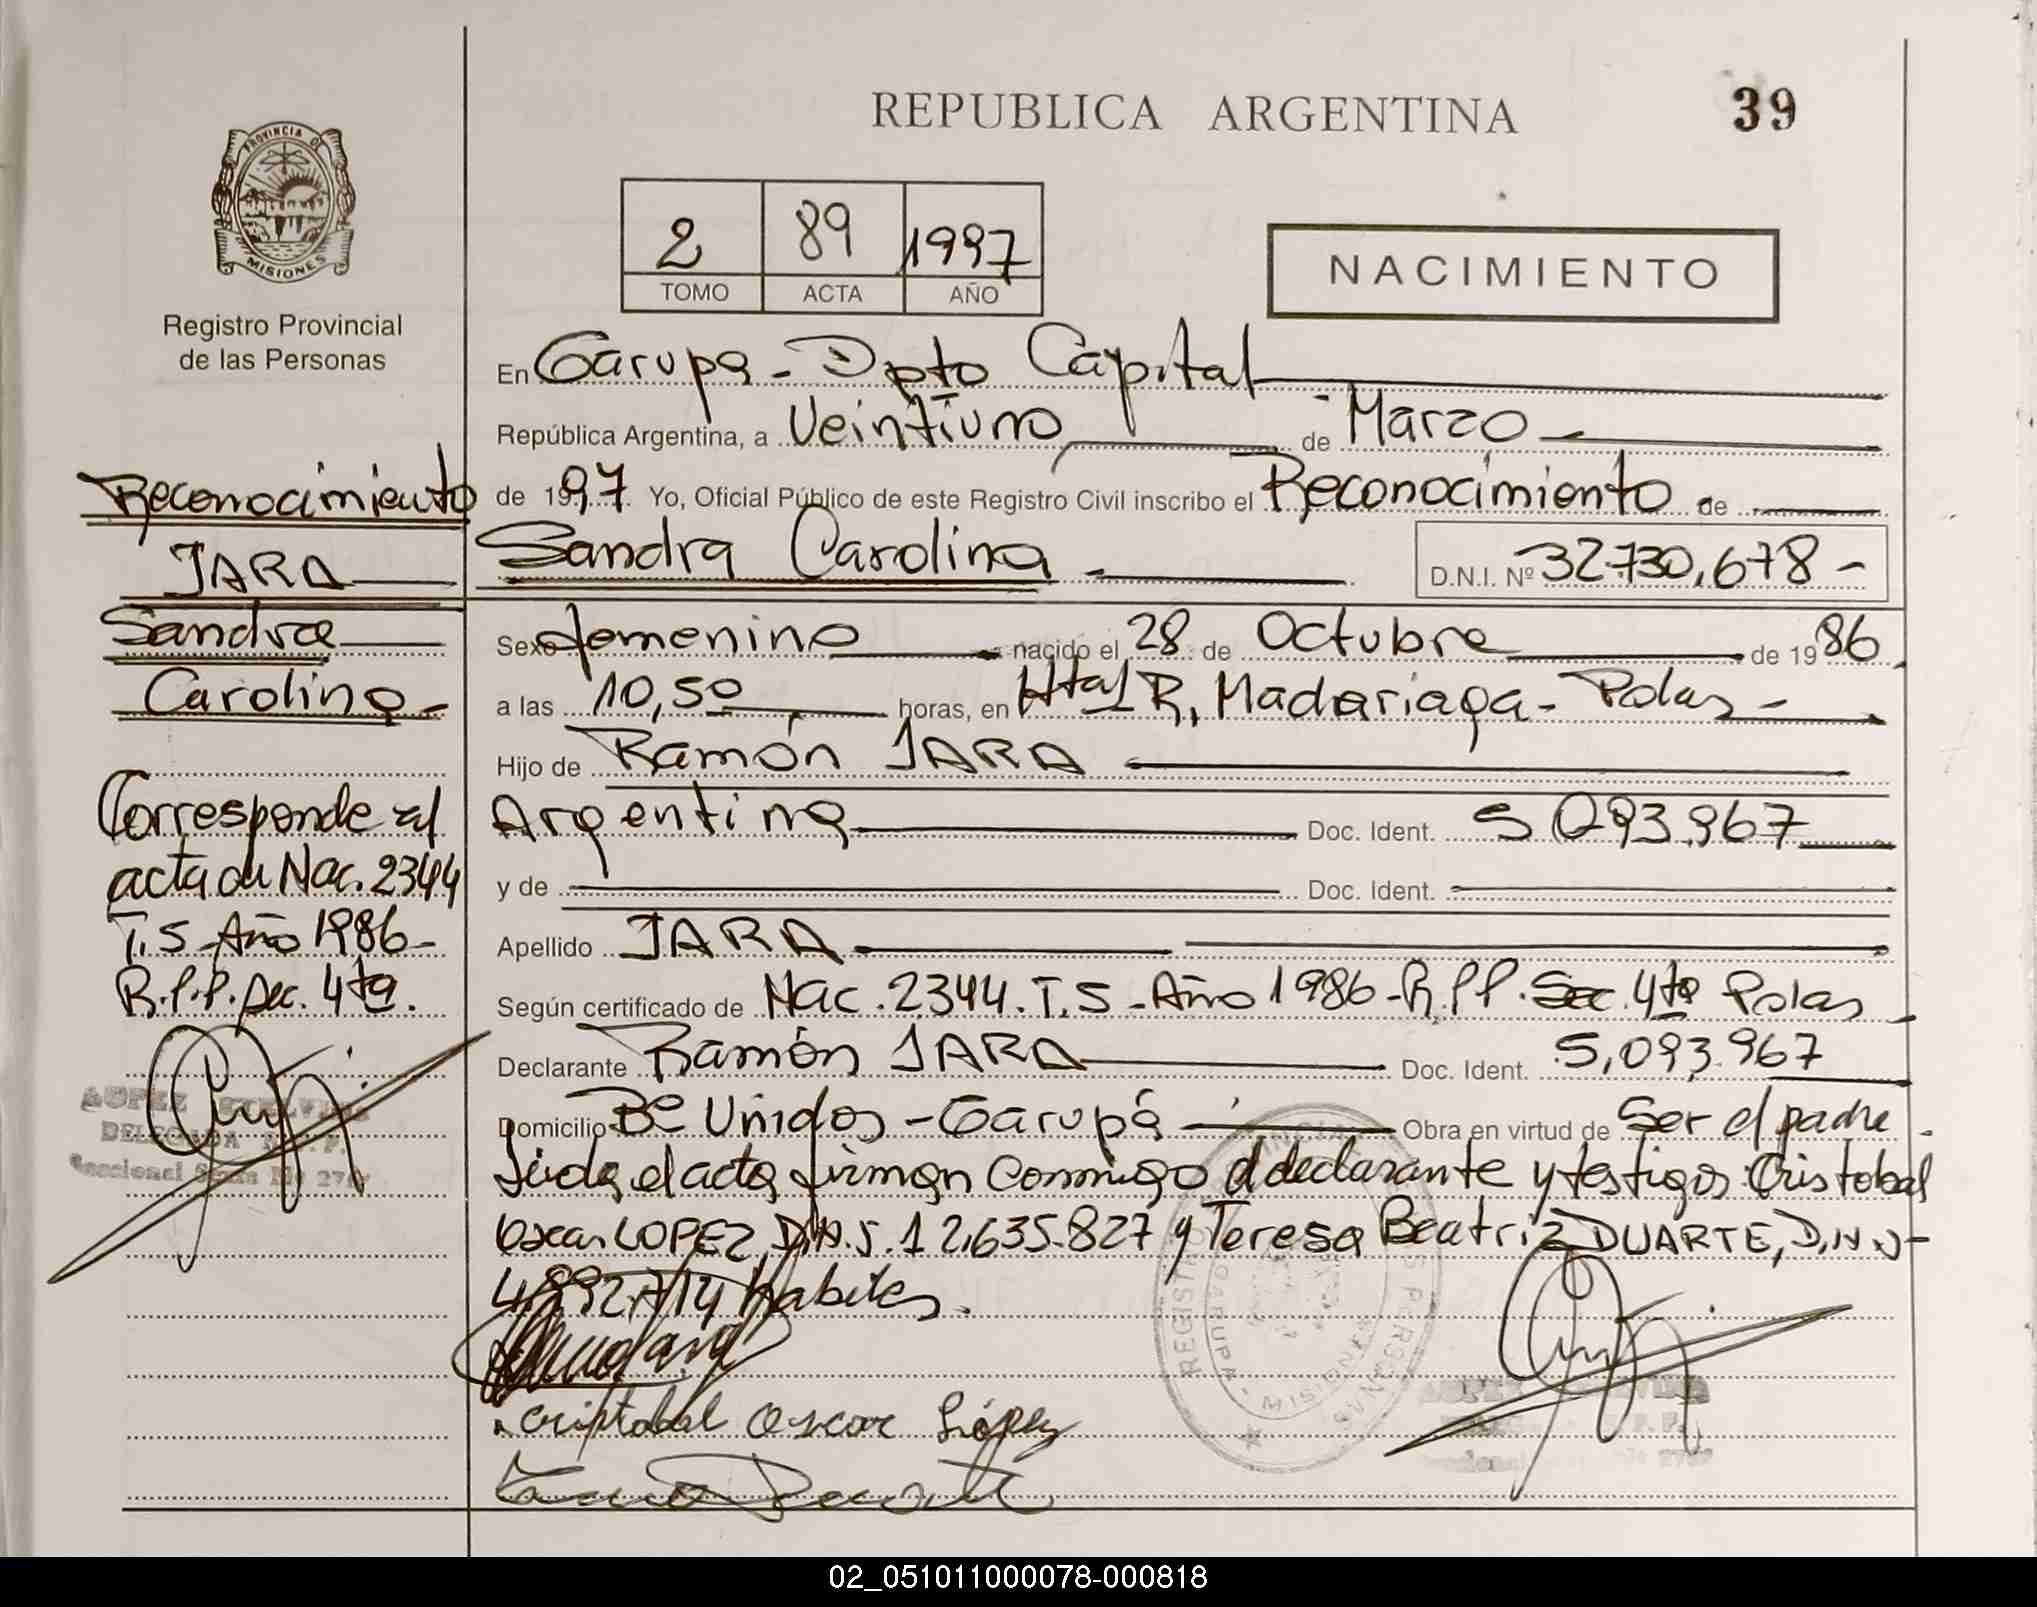 REPUBLICA ARGENTINA
39
PROVINCIA DE
MISIONES
Registro Provincial
de las Personas
2 89 1997
TOMO ACTA AÑO
NACIMIENTO
En Garupa - Dpto Capital
República Argentina, a Veintiuno de Marzo
de 1997 Yo, Oficial Público de este Registro Civil inscribo el Reconocimiento de
Sandra Carolina D.N.I. Nº 32.730,678 -
Sexo femenino nacido el 28 de Octubre de 1986
a las 10,50 horas, en Htal R, Madariaga - Pdas -
Hijo de Ramón JARA
Argentina Doc. Ident. 5.093.967
y de Doc. Ident.
Apellido JARA
Según certificado de Nac. 2344. T, 5 - Año 1986 - R.P.P. Sec. 4ta Pdas
Declarante Ramón JARA Doc. Ident. 5,093,967
Domicilio Bº Unidos - Garupá Obra en virtud de Ser el padre
Leida el acta firman conmigo el declarante y testigos Cristobal
Oscar LOPEZ, D.N.I. 12,635.827 y Teresa Beatriz DUARTE, D.N.I -
habiles.
Cristobal Oscar López
Reconocimiento
JARA
Sandra
Carolina -
Corresponde al
acta de Nac. 2344
T. 5 - Año 1986 -
R.P.P. Sec. 4ta.
DELEGADA
REGISTRO PROVINCIAL PERSONAS
GARUPA - MISIONES
02_051011000078-000818